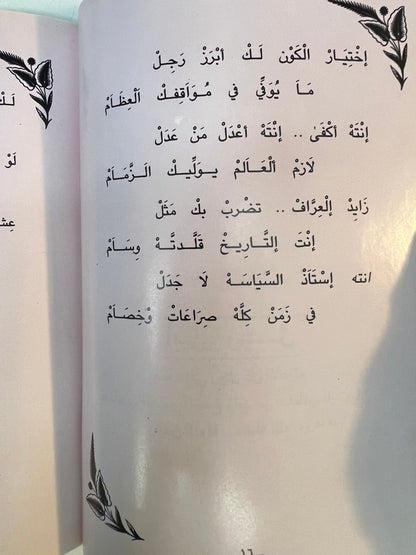 إخْتِيَارْ الْكَوْن لَكْ أبْرَزْ رَجِلْ
مَا يُوَفِّي في مُوَاقِفِكْ الْعِظَامْ
إنْتَهْ أكْفَىٰ .. إنْتَهْ أعْدَلْ مَنْ عَدَلْ
لَازِمْ الْعَالَمْ يوَلِّيكْ الزَّمَامْ
زَايِدْ إلْعِرَّافْ .. تضْرِبْ بكْ مَثَلْ
إنْتَ إلتَّارِيخْ قَلَّدتَهْ وِسَامْ
انته إسْتَاذْ السِّيَاسَهْ لَا جَدَلْ
في زَمَنْ كِلَّهْ صِرَاعَاتْ وْخِصَامْ
١٦
لَكْ
لَوْ